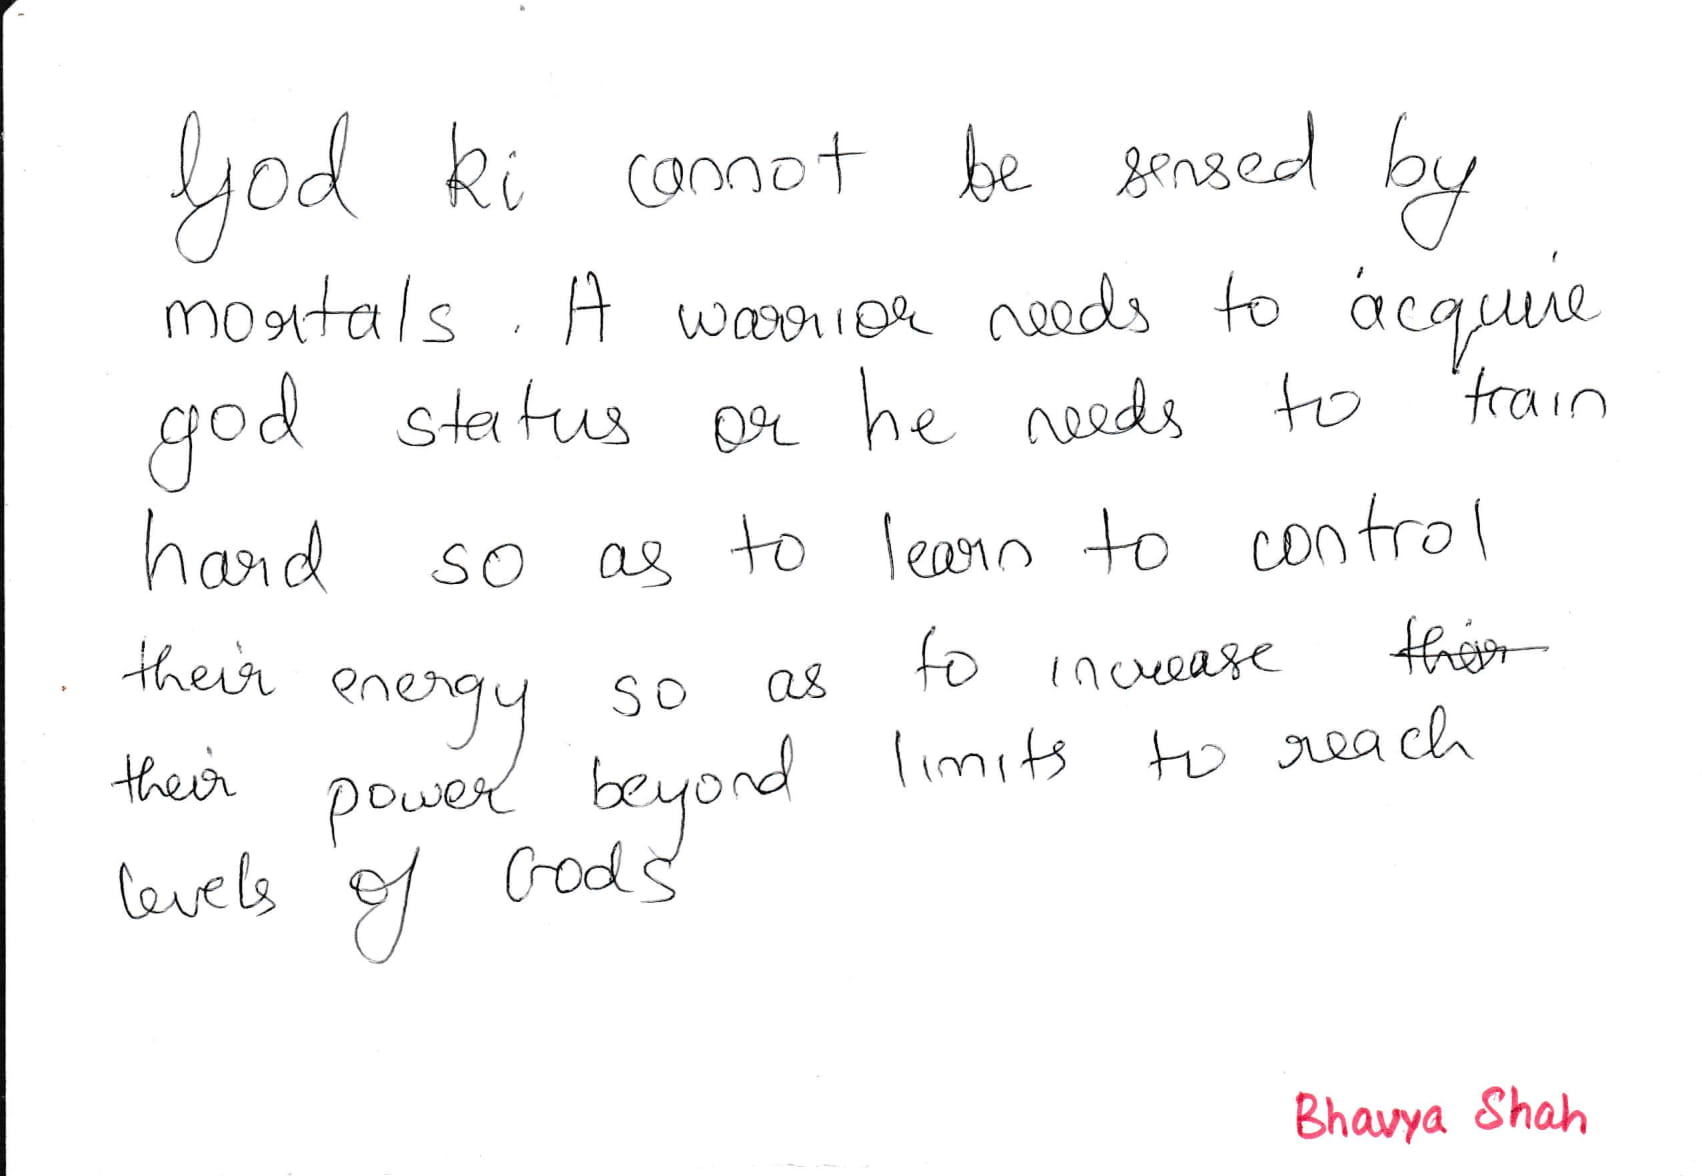 God ki cannot be sensed by
mortals. A warrior needs to acquire
god status or he needs to train
hard so as to learn to control
their energy so as to increase their
their power beyond limits to reach
levels of Gods
Bhavya Shah